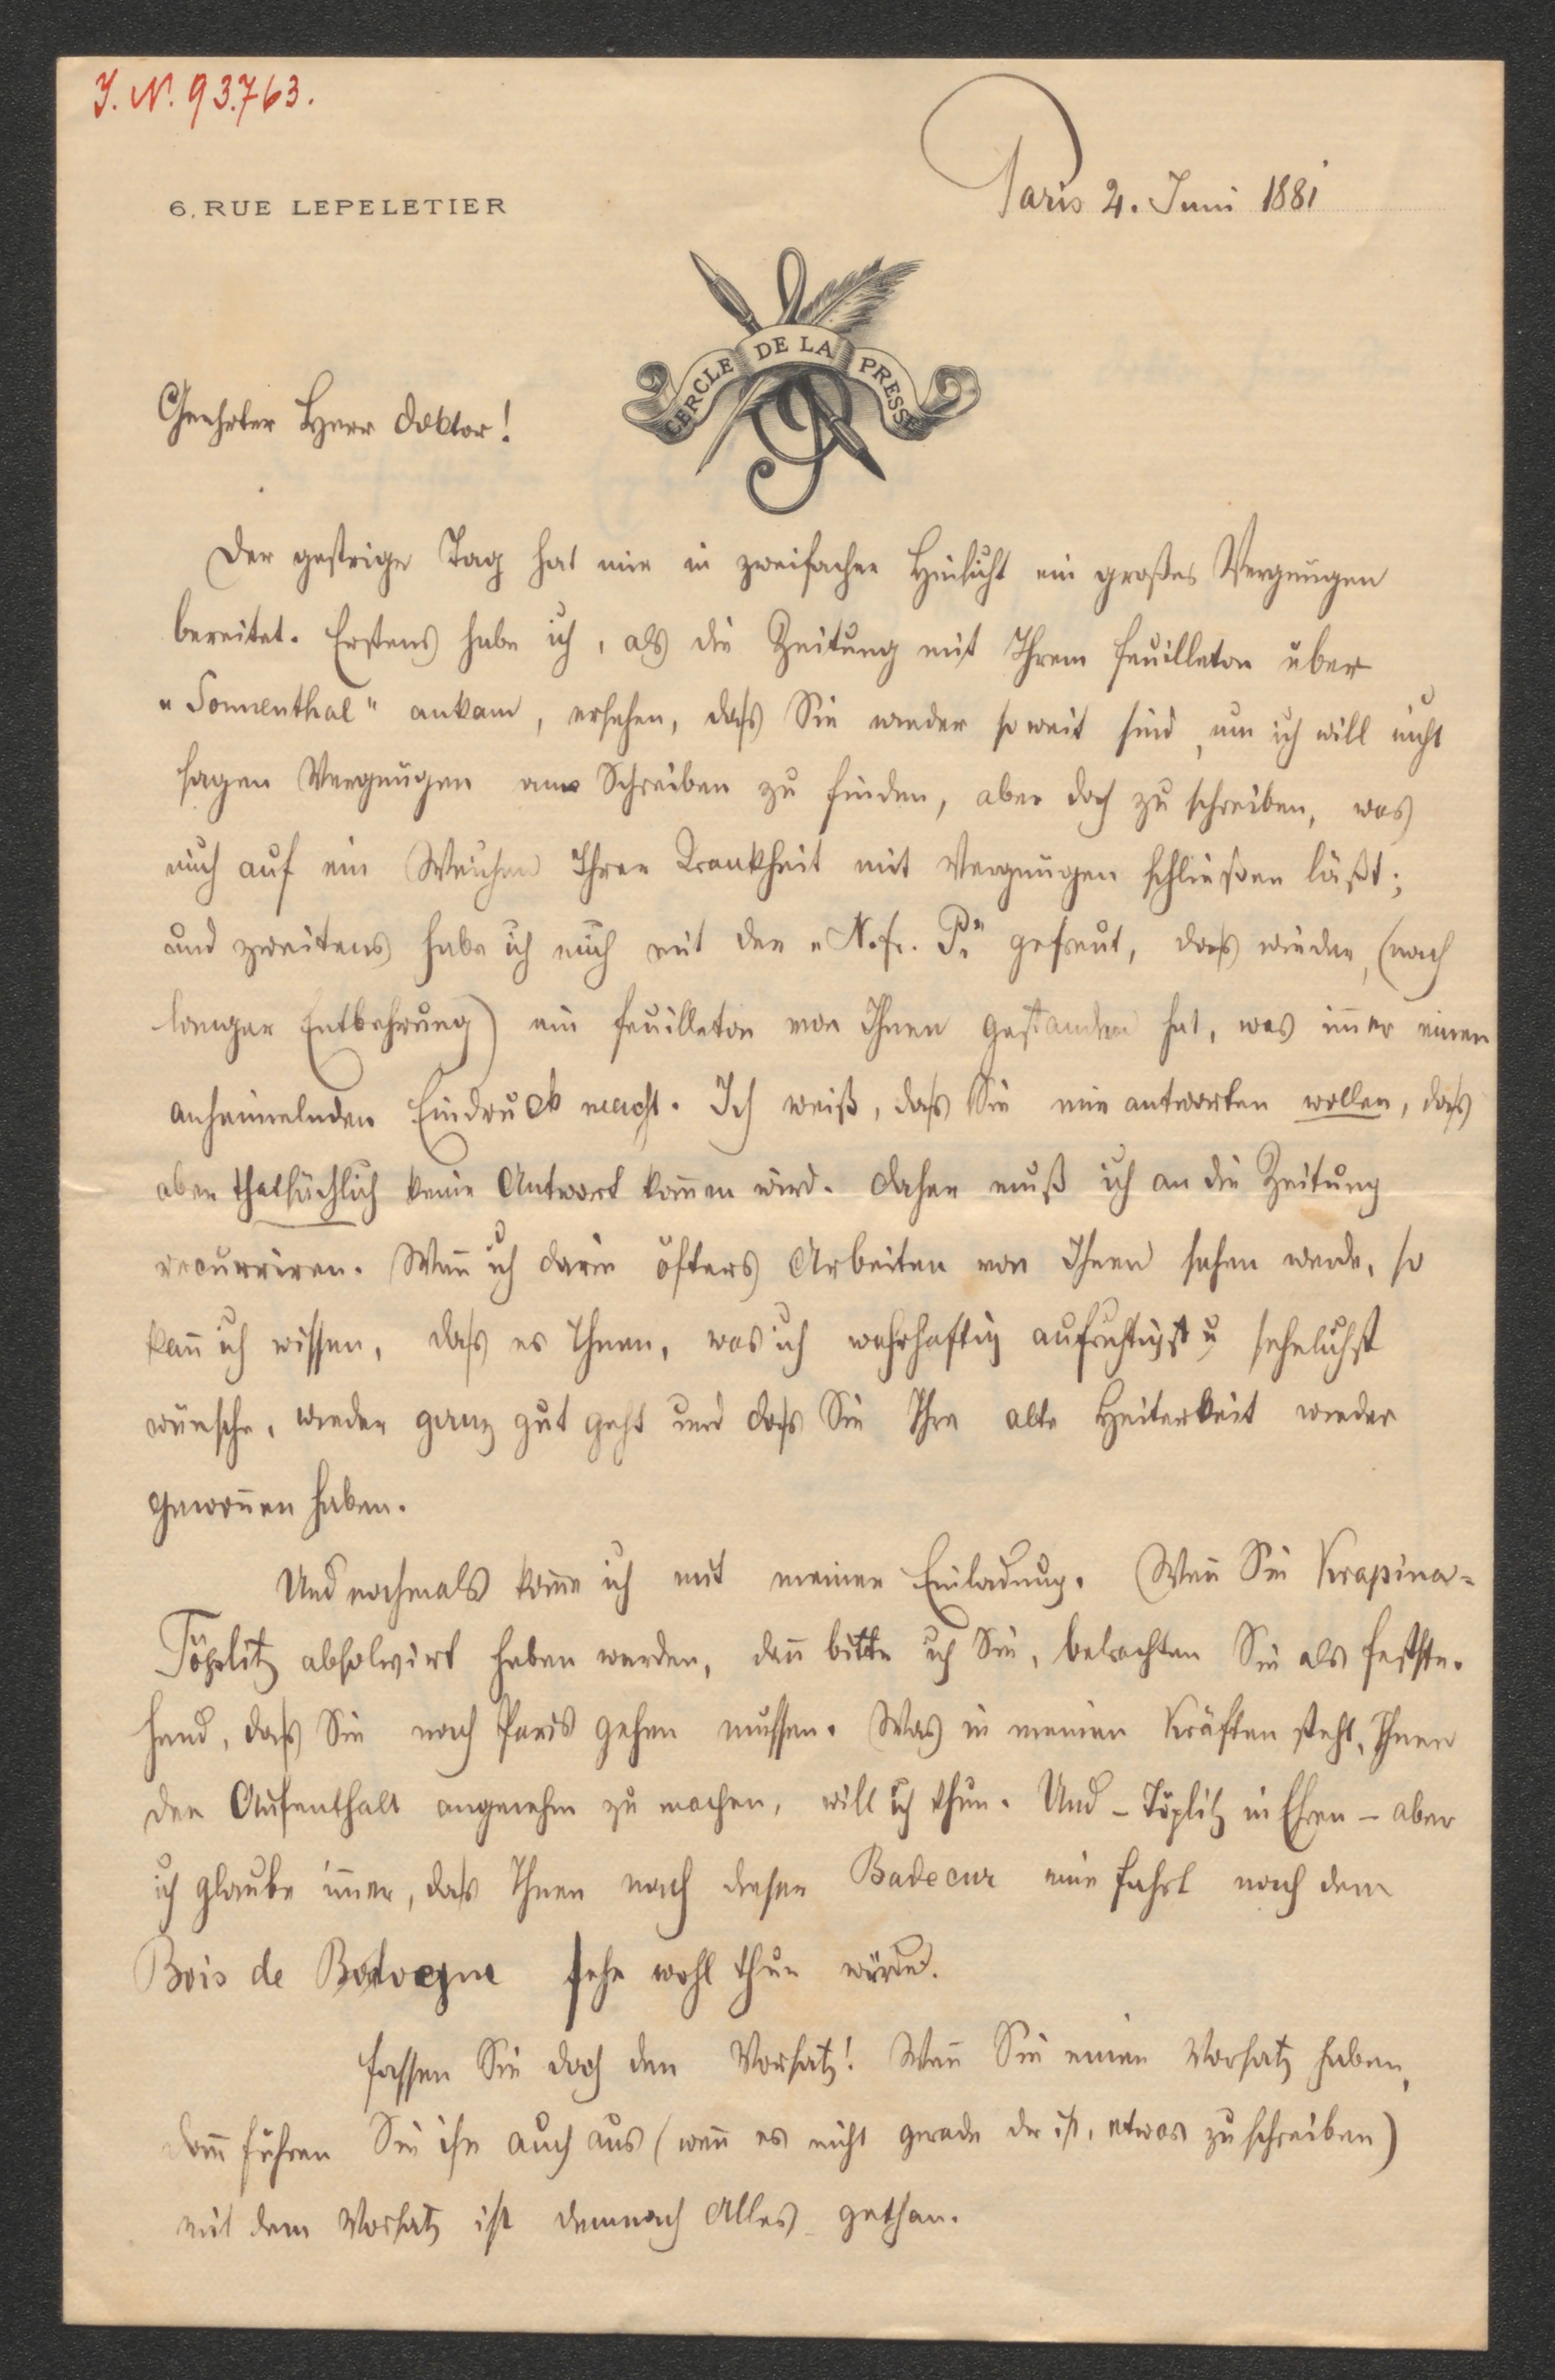 J. N. 93.763.
6, RUE LEPELETIER
Paris 2. Juni 1881
CERCLE DE LA PRESSE
Geehrter Herr Doktor!
Der gestrige Tag hat mir in zweifacher Hinsicht ein großes Vergnügen
bereitet. Erstens habe ich, als die Zeitung mit Ihrem Feuilleton über
„Sonnenthal" ankam, ersehen, daß Sie wieder so weit sind, um ich will nicht
sagen Vergnügen am Schreiben zu finden, aber doch zu schreiben, was
mich auf ein Weichen Ihrer Krankheit mit Vergnügen schließen läßt;
und zweitens habe ich mich mit der „N. fr. P." gefreut, daß wieder, (nach
langer Entbehrung) ein Feuilleton von Ihnen gestanden hat, was im̅er einen
anheimelnden Eindruck macht. Ich weiß, daß Sie mir antworten wollen, daß
aber thatsächlich keine Antwort kom̅en wird. Daher muß ich an die Zeitung
recurriren. Wen̅ ich darin öfters Arbeiten von Ihnen sehen werde, so
kan̅ ich wissen, daß es Ihnen, was ich wahrhaftig aufrichtigst u sehnlichst
wünsche, wieder ganz gut geht und daß Sie Ihre alte Heiterkeit wieder
gewon̅en haben.
Und nochmals kom̅e ich mit meiner Einladung. Wen̅ Sie Krapina-
Töplitz absolvirt haben werden, dan̅ bitte ich Sie, betrachten Sie als festste-
hend, daß Sie nach Paris gehen müssen. Was in meinen Kräften steht, Ihnen
den Aufenthalt angenehm zu machen, will ich thun. Und – Töplitz in Ehren – aber
ich glaube im̅er, daß Ihnen nach dieser Badecur eine Fahrt nach dem
Bois de Boulogne sehr wohl thun würde.
Fassen Sie doch den Vorsatz! Wen̅ Sie einen Vorsatz haben,
dan̅ führen Sie ihn auch aus (wen̅ es nicht gerade der ist, etwas zu schreiben)
mit dem Vorsatz ist demnach Alles gethan.